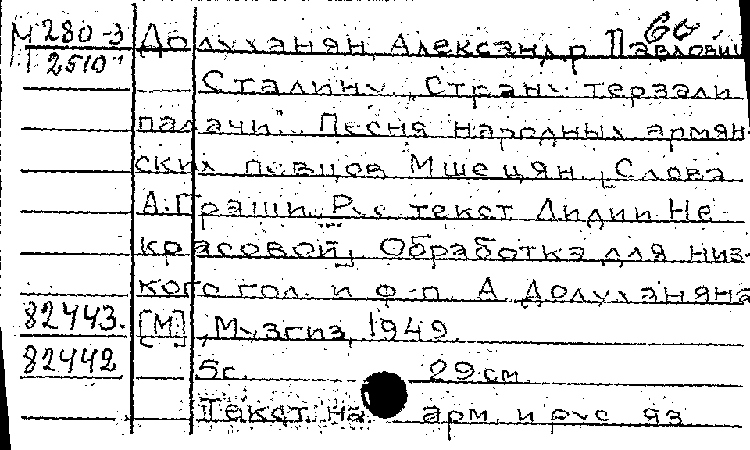 М 280-3
2510
Долуханян, Александр Павлович
Сталину. „Страну терзали
палачи". Песня народных армян-
ских певцов Мшецян. [Слова
А. Граши. Рус. текст Лидии Не-
красовой]. Обработка для низ-
кого гол. и ф-п. А. Долуханяна
82443. [М.], Музгиз, 1949.
82442 5с. 29см.
Текст на арм. и рус. яз.